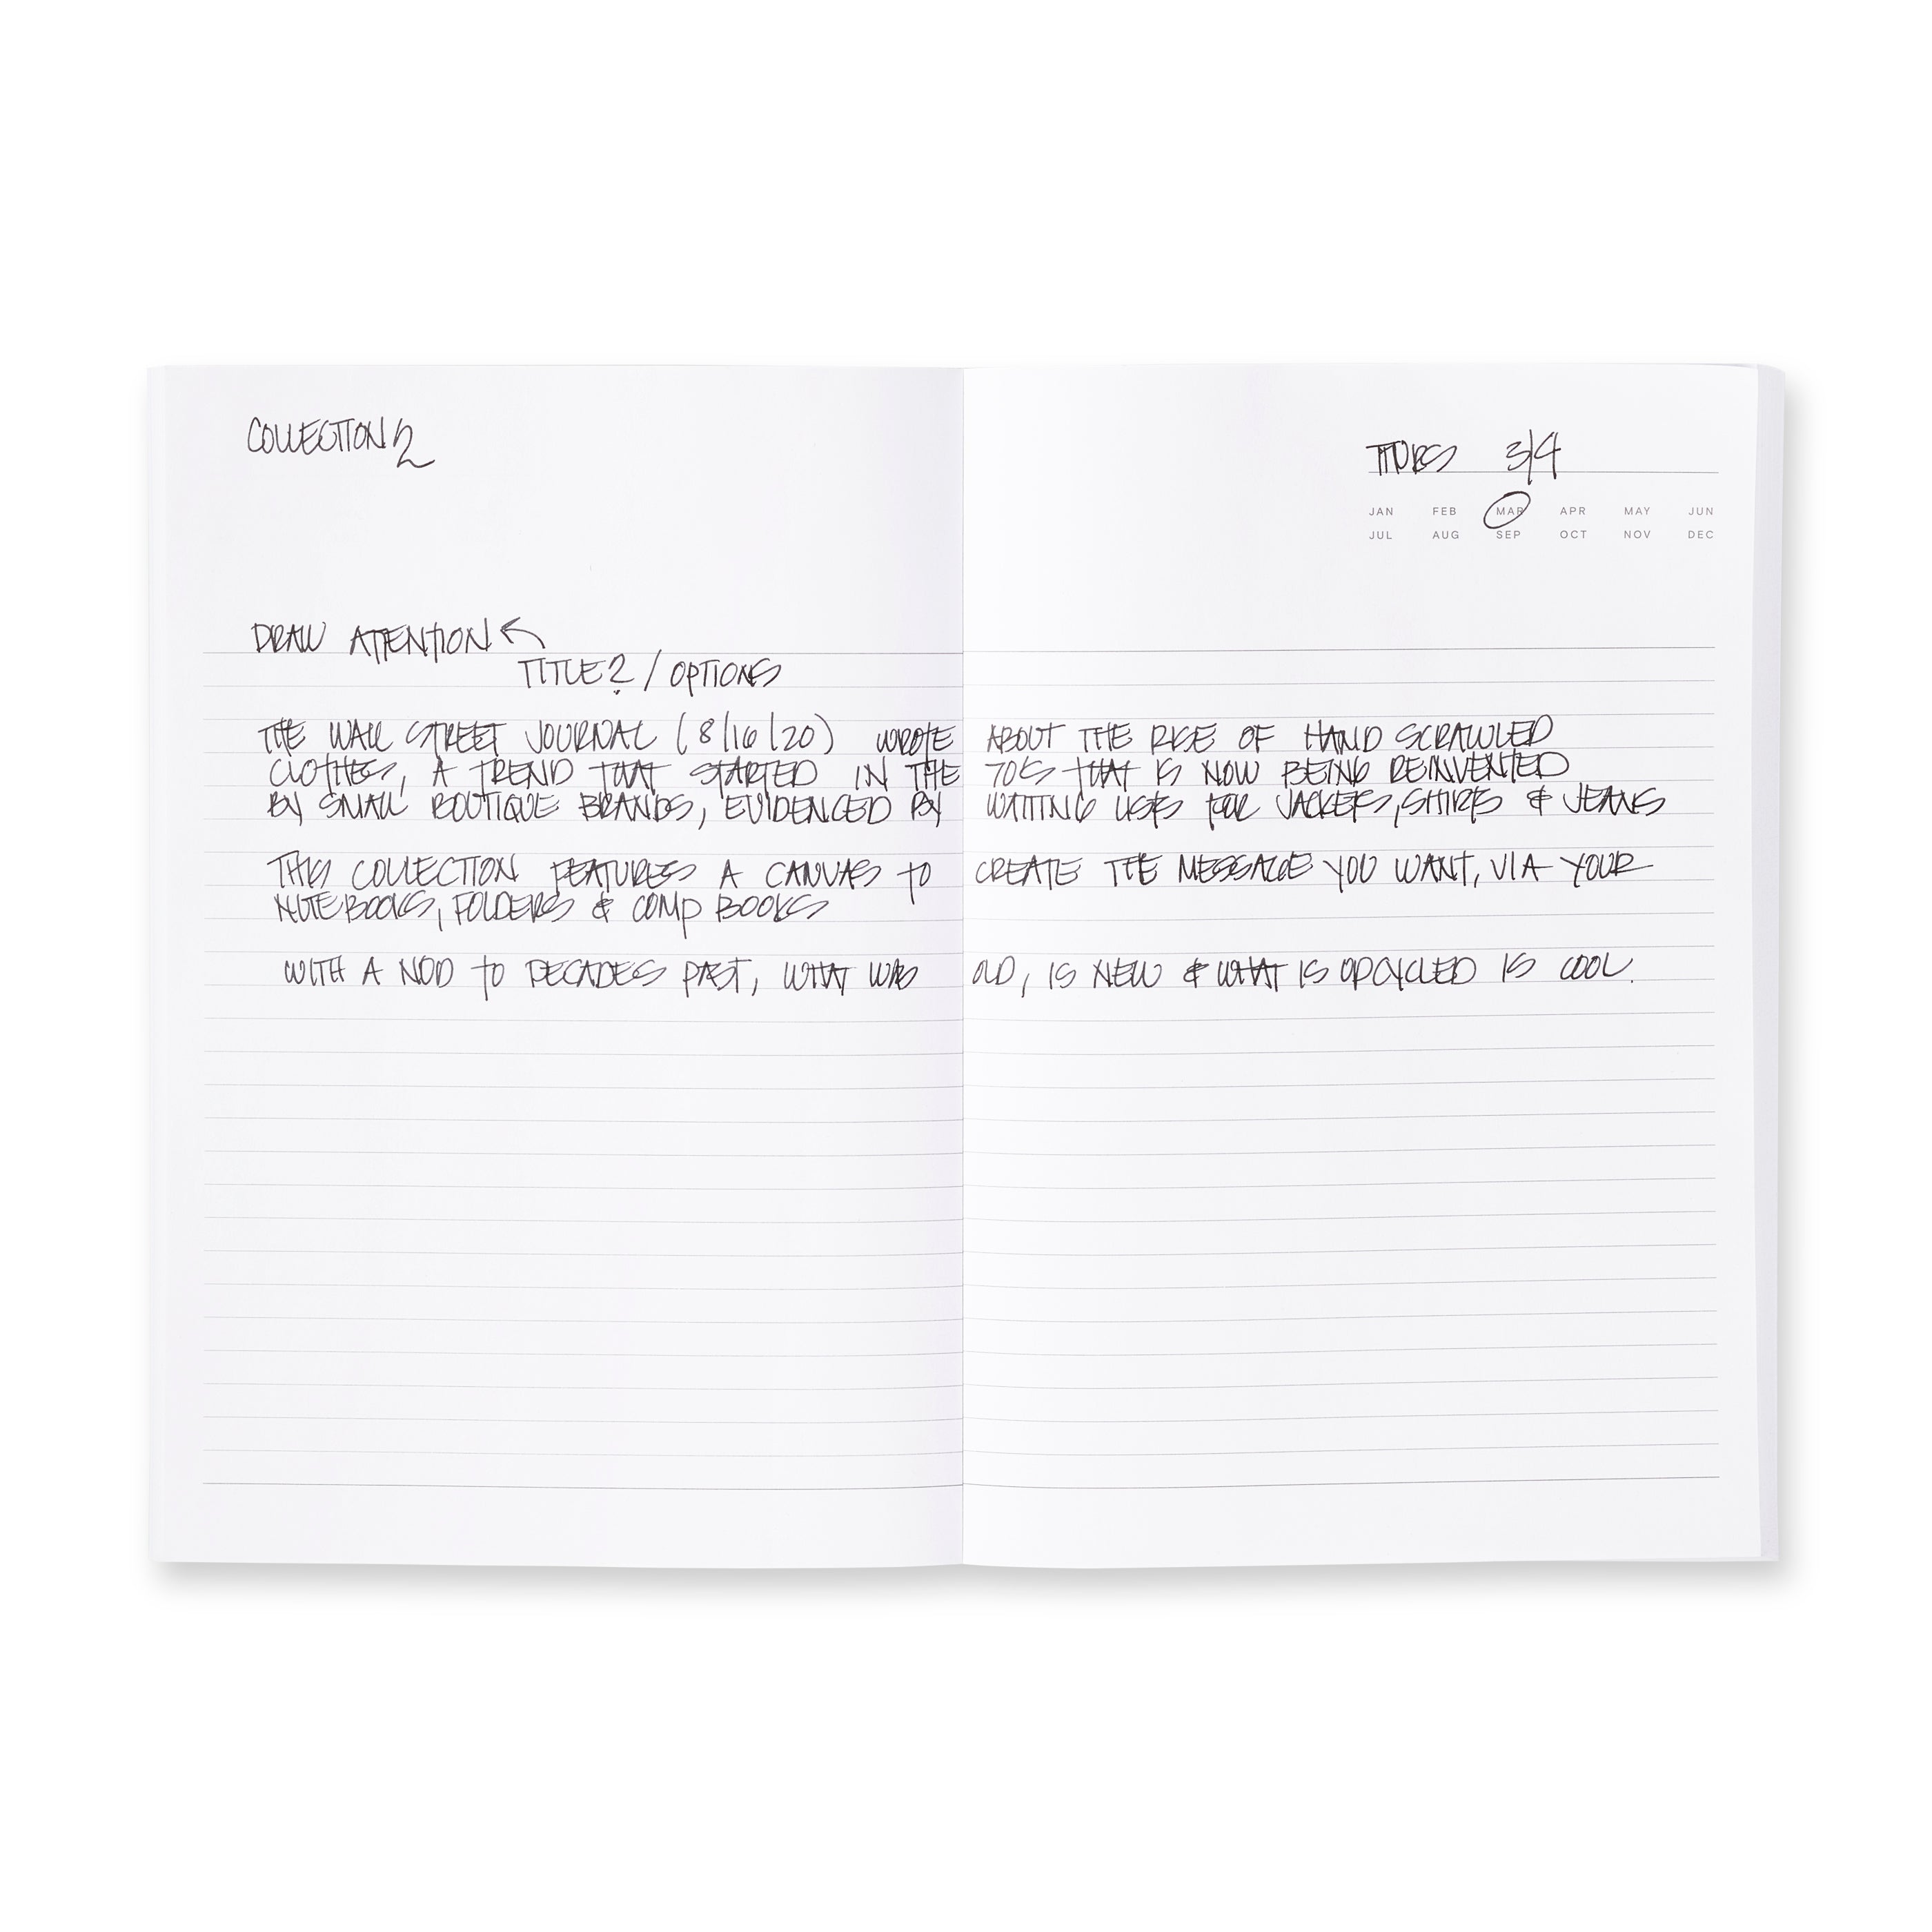 COLLECTION 2
THURS 3/4
JAN FEB MAR APR MAY JUN
JUL AUG SEP OCT NOV DEC
DRAW ATTENTION
TITLE? / OPTIONS
THE WALL STREET JOURNAL (8/16/20) WROTE ABOUT THE RISE OF HAND SCRAWLED
CLOTHES, A TREND THAT STARTED IN THE 70'S THAT IS NOW BEING REINVENTED
BY SMALL BOUTIQUE BRANDS, EVIDENCED BY WAITING LISTS FOR JACKETS, SHIRTS & JEANS
THIS COLLECTION FEATURES A CANVAS TO CREATE THE MESSAGE YOU WANT, VIA YOUR
NOTEBOOKS, FOLDERS & COMP BOOKS
WITH A NOD TO DECADES PAST, WHAT WAS OLD, IS NEW & WHAT IS UPCYCLED IS COOL.